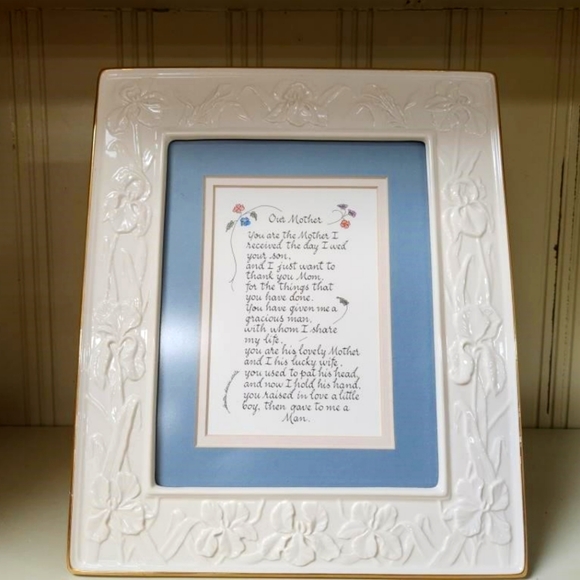 Our Mother
You are the Mother I
received the day I wed
your son,
and I just want to
thank you Mom,
for the things that
you have done.
You have given me a
gracious man,
with whom I share
my life.
you are his lovely Mother
and I his lucky wife.
you used to pat his head,
and now I hold his hand.
you raised in love a little
boy, then gave to me a
Man.